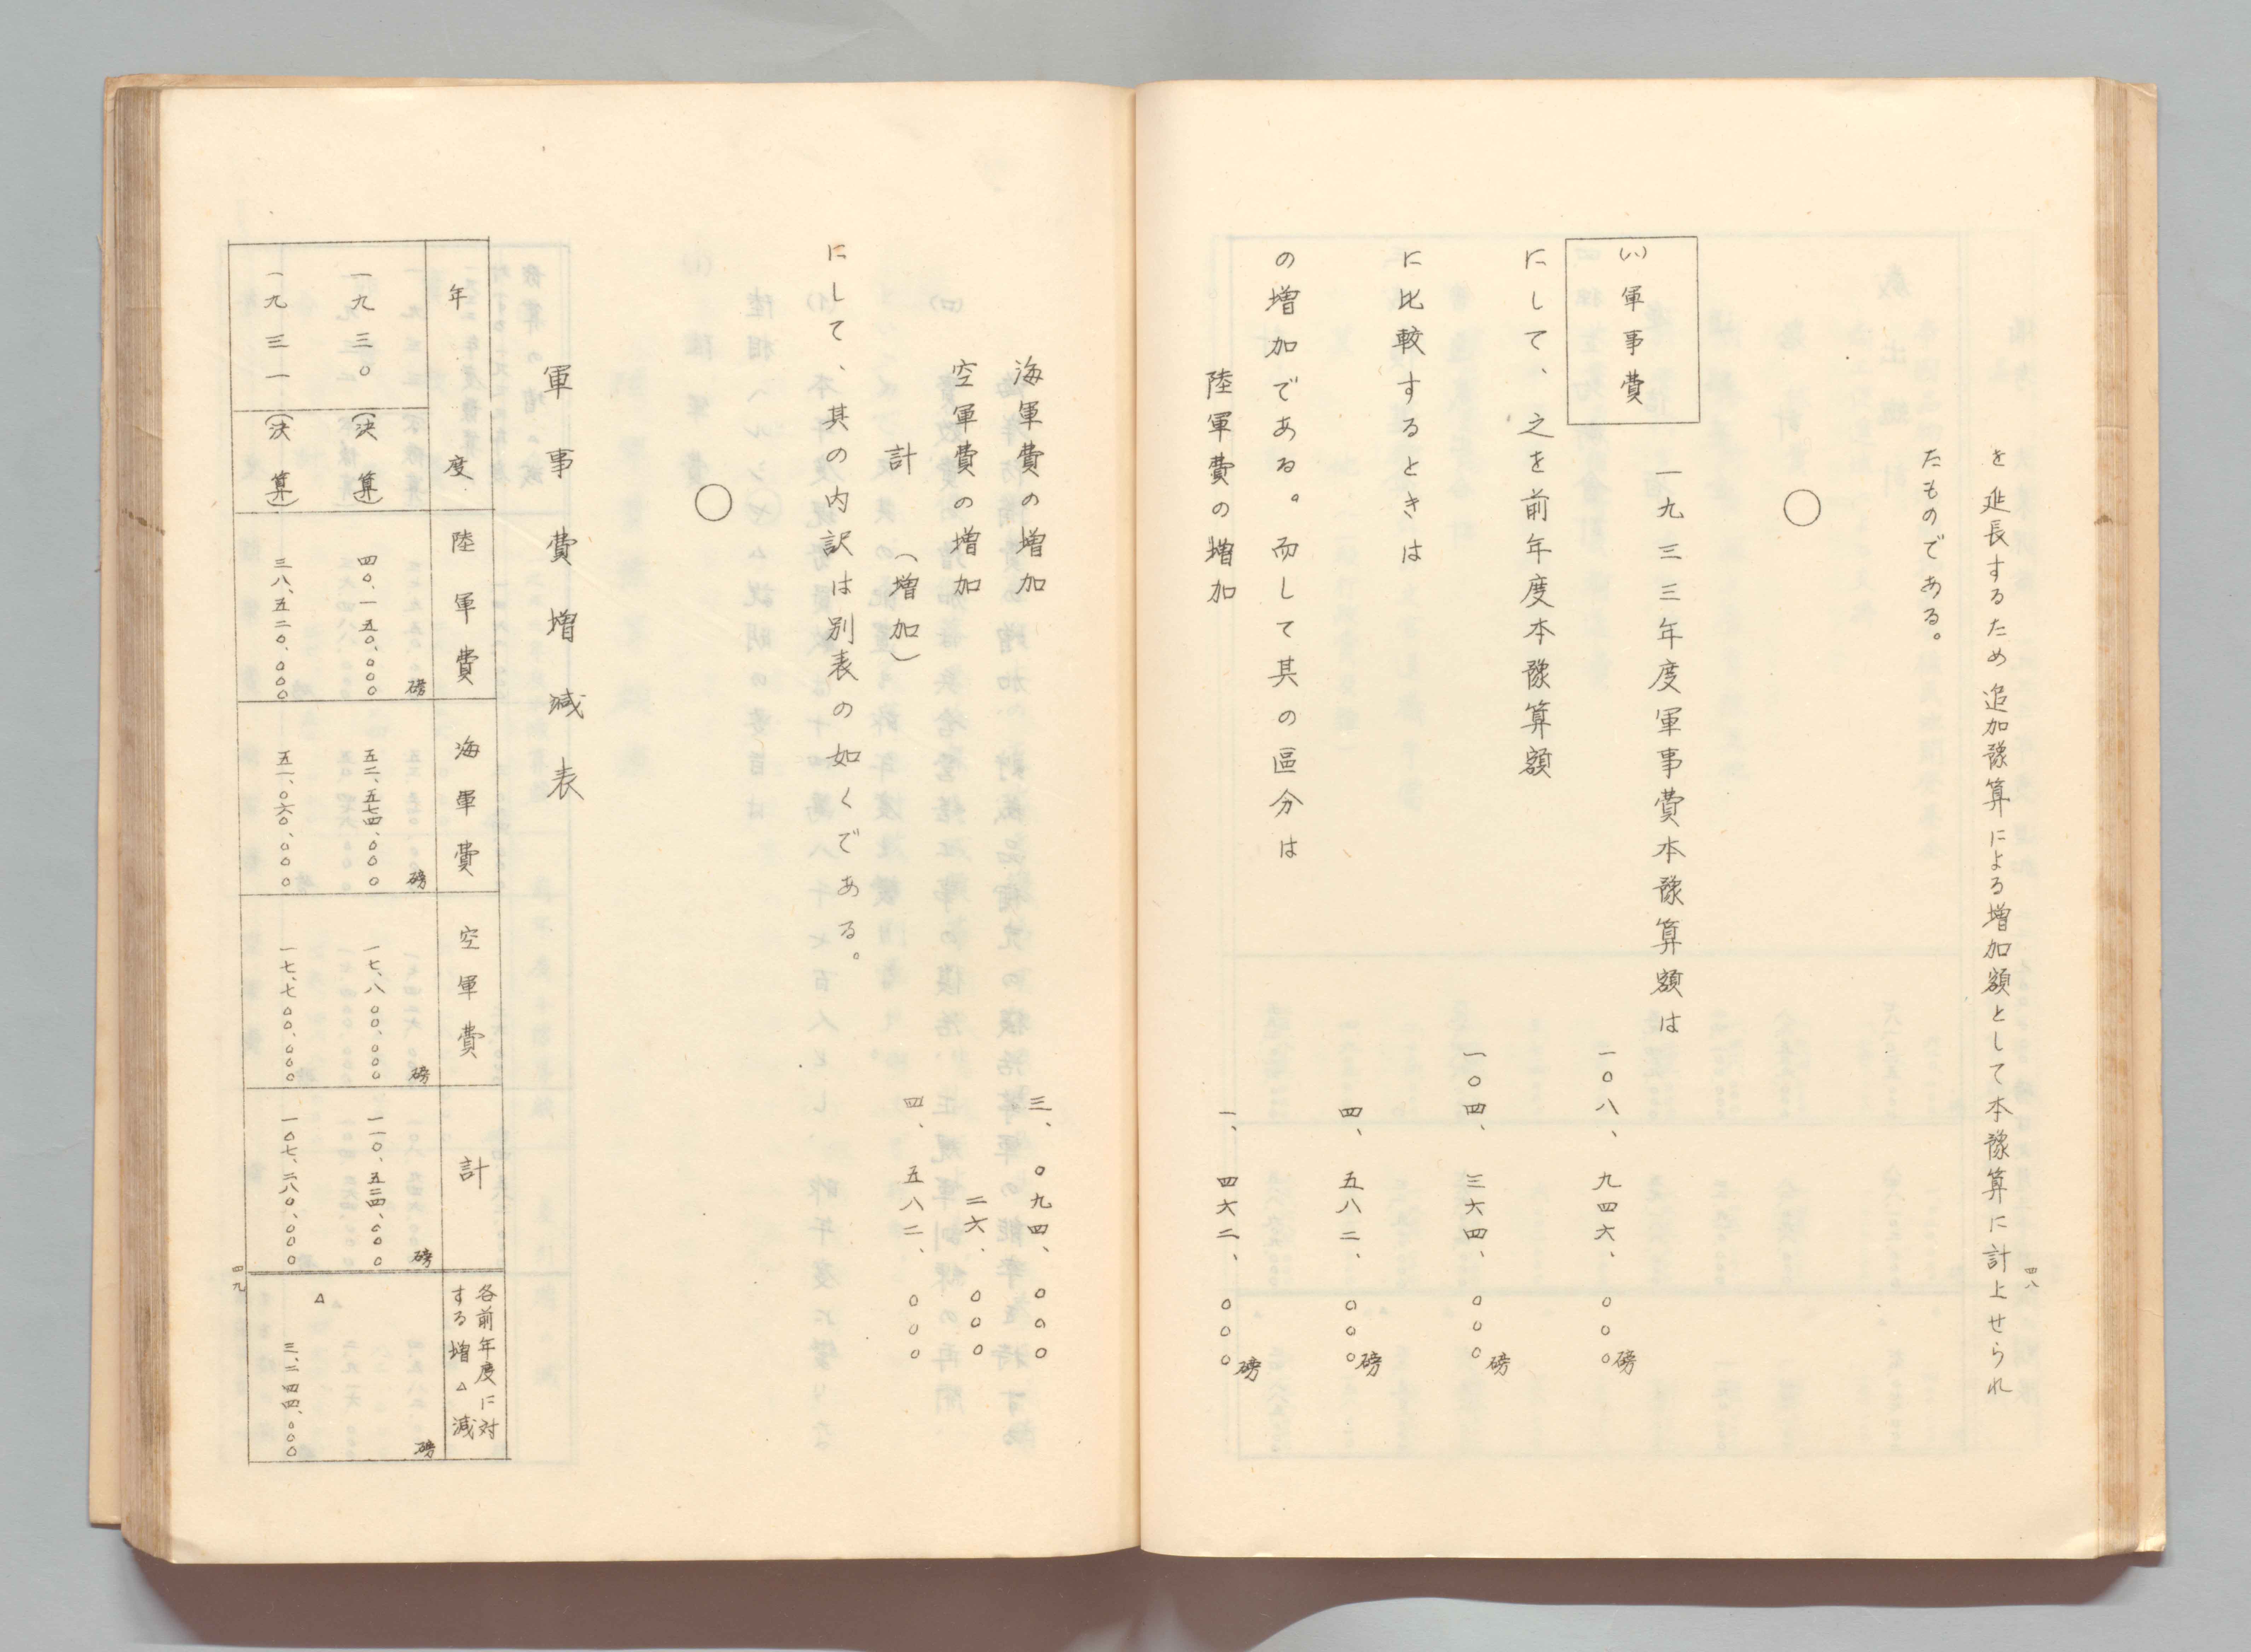 を延長するため追加豫算による増加額として本豫算に計上せられ
たものである。
○
(ハ)軍事費
一九三三年度軍事費本豫算額は 一〇八、九四六、〇〇〇磅
にして、之を前年度本豫算額 一〇四、三六四、〇〇〇磅
に比較するときは 四、五八二、〇〇〇磅
の増加である。而して其の區分は
陸軍費の増加 一、四六二、〇〇〇磅
四八
海軍費の増加 三、〇九四、〇〇〇
空軍費の増加 二六、〇〇〇
計 (増加) 四、五八二、〇〇〇
にして、其の内訳は別表の如くである。
○
軍事費増減表
年度 陸軍費 海軍費 空軍費 計 各前年度に対する増△減
磅 磅 磅 磅 磅
一九三〇(決算) 四〇、一五〇、〇〇〇 五二、五七四、〇〇〇 一七、八〇〇、〇〇〇 一一〇、五二四、〇〇〇
一九三一(決算) 三八、五二〇、〇〇〇 五一、〇六〇、〇〇〇 一七、七〇〇、〇〇〇 一〇七、二八〇、〇〇〇 △ 三、二四四、〇〇〇
四九